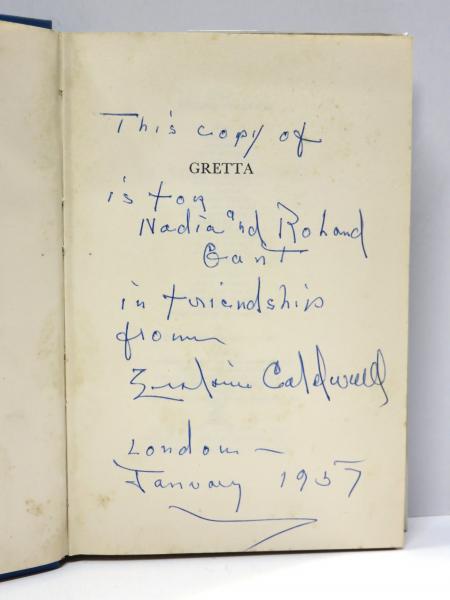 This copy of
GRETTA
is for
Nadia and Roland
Gant
in friendship
from
Erskine Caldwell
London —
January 1957